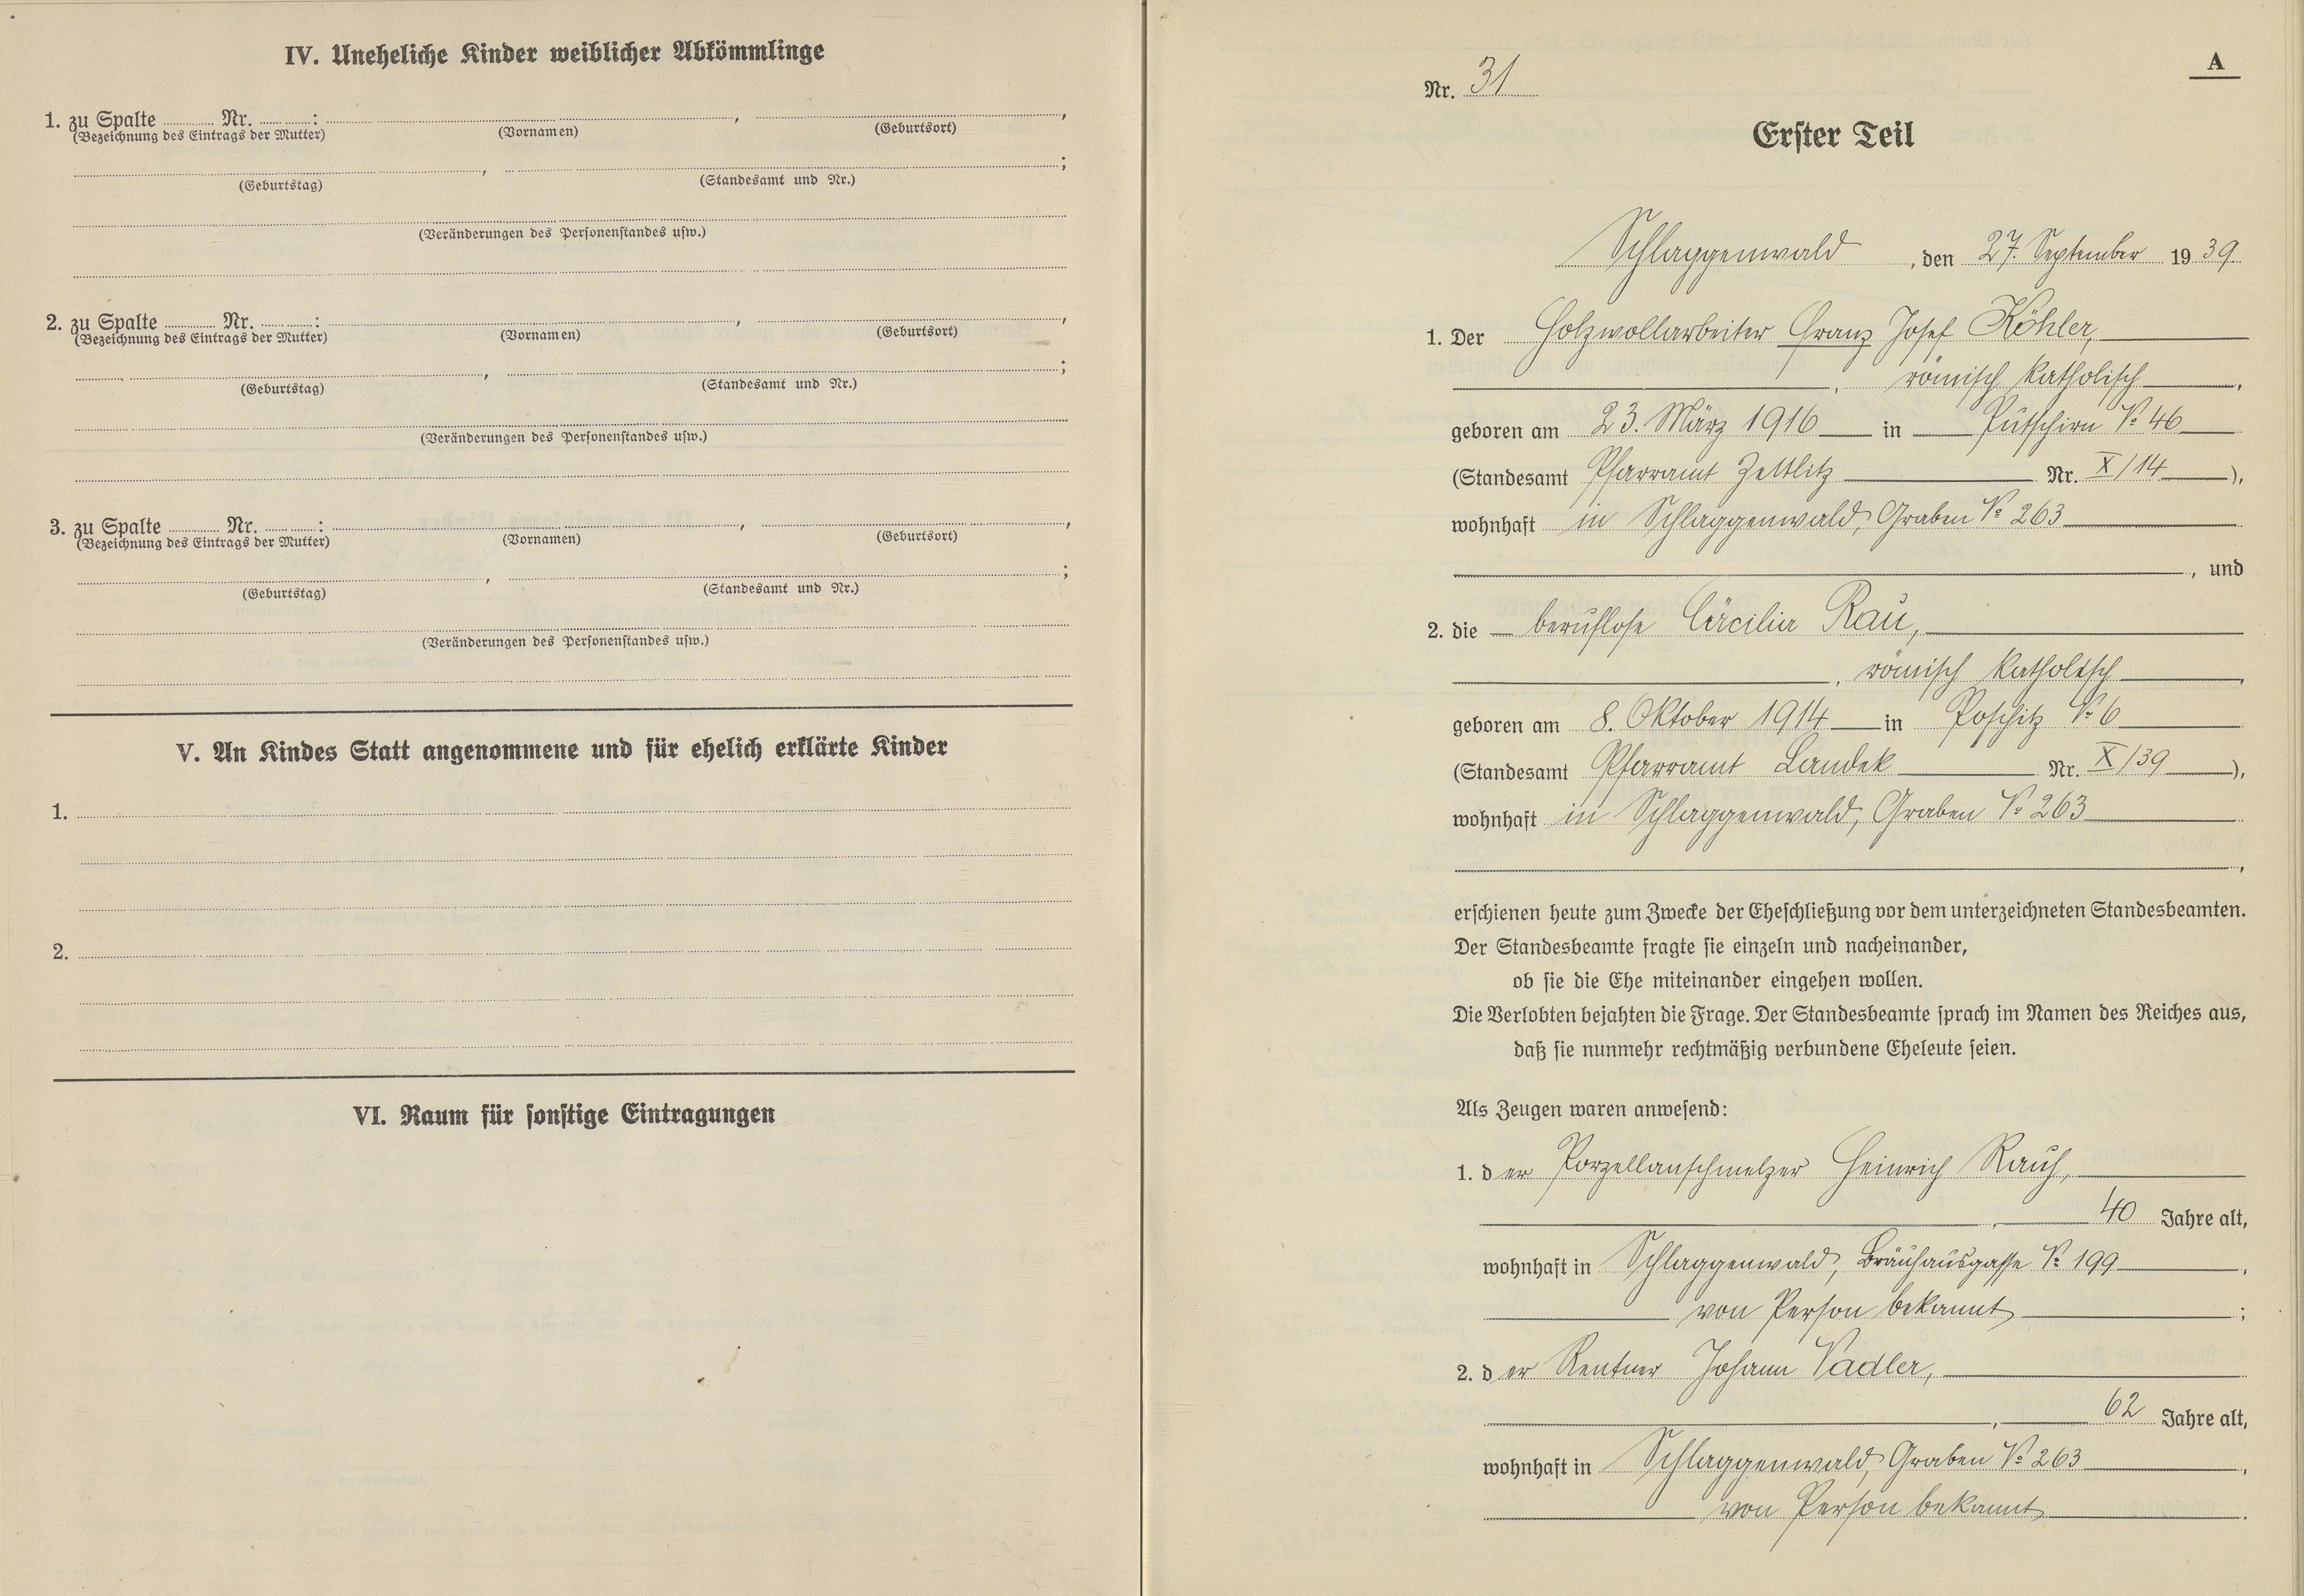 IV. Uneheliche Kinder weiblicher Abkömmlinge
1. zu Spalte Nr. : , ,
(Bezeichnung des Eintrags der Mutter) (Vornamen) (Geburtsort)
, ;
(Geburtstag) (Standesamt und Nr.)
(Veränderungen des Personenstandes usw.)
2. zu Spalte Nr. : , ,
(Bezeichnung des Eintrags der Mutter) (Vornamen) (Geburtsort)
, ;
(Geburtstag) (Standesamt und Nr.)
(Veränderungen des Personenstandes usw.)
3. zu Spalte Nr. : , ,
(Bezeichnung des Eintrags der Mutter) (Vornamen) (Geburtsort)
, ;
(Geburtstag) (Standesamt und Nr.)
(Veränderungen des Personenstandes usw.)
V. An Kindes Statt angenommene und für ehelich erklärte Kinder
1.
2.
VI. Raum für sonstige Eintragungen
A
Nr. 31
Erster Teil
Schlaggenwald, den 27. September 1939.
1. Der Holzwollarbeiter Franz Josef Köhler,
, römisch katholisch,
geboren am 23. März 1916 in Putschirn № 46
(Standesamt Pfarramt Zettlitz Nr. X/14),
wohnhaft in Schlaggenwald, Graben № 263
, und
2. die berufslose Cäcilia Rau,
, römisch katholisch,
geboren am 8. Oktober 1914 in Poschitz № 6
(Standesamt Pfarramt Landek Nr. X/39),
wohnhaft in Schlaggenwald, Graben № 263
,
erschienen heute zum Zwecke der Eheschließung vor dem unterzeichneten Standesbeamten.
Der Standesbeamte fragte sie einzeln und nacheinander,
ob sie die Ehe miteinander eingehen wollen.
Die Verlobten bejahten die Frage. Der Standesbeamte sprach im Namen des Reiches aus,
daß sie nunmehr rechtmäßig verbundene Eheleute seien.
Als Zeugen waren anwesend:
1. der Porzellanschmelzer Heinrich Rauh,
, 40 Jahre alt,
wohnhaft in Schlaggenwald, Bräuhausgasse № 199,
von Person bekannt;
2. der Rentner Johann Vadler,
, 62 Jahre alt,
wohnhaft in Schlaggenwald, Graben № 263,
von Person bekannt.